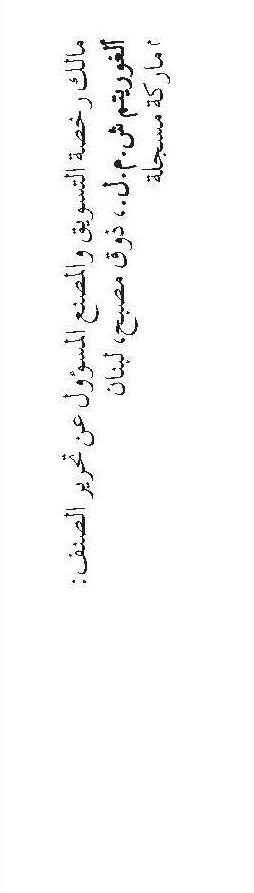 مالك رخصة التسويق والمصنع المسؤول عن تحرير الصنف:
ألغوريتم ش.م.ل.، ذوق مصبح، لبنان
ماركة مسجلة